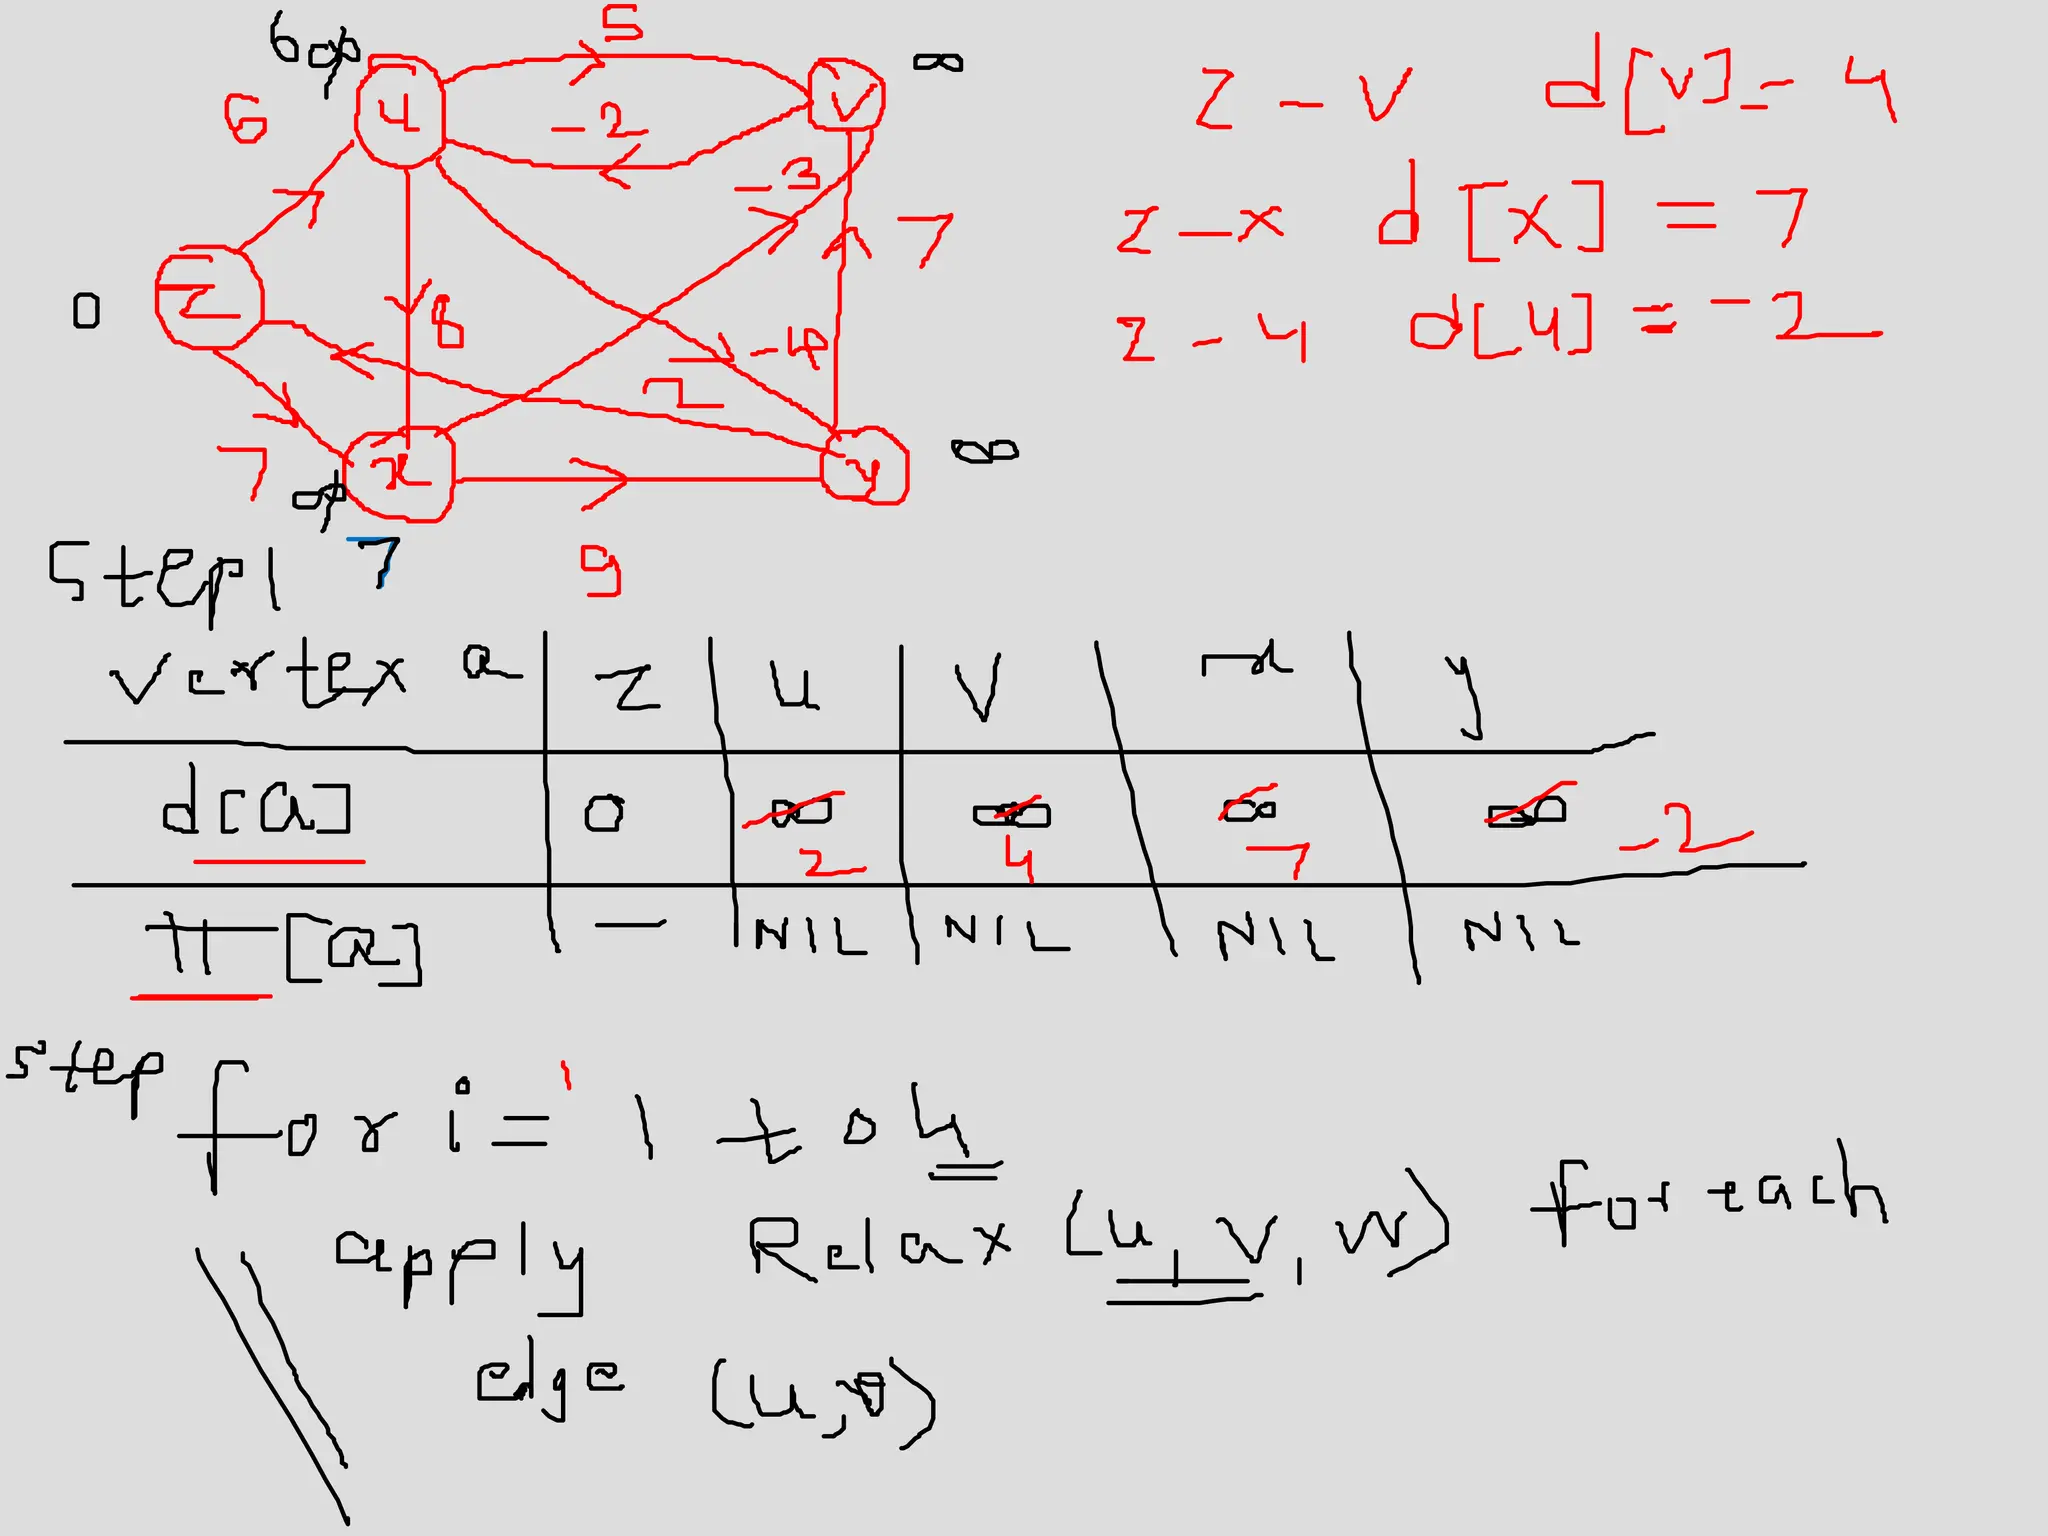 6 ∞ 5 ∞
6 u -2 v
z – v d[v] = 4
-3 7
z – x d[x] = 7
0 z 8 -4
z – y d[y] = -2
2
7 x y ∞
∞
7 9
Step1
vertex a z u v x y
d[a] 0 ∞ ∞ ∞ ∞
2 4 7 -2
π[a] – NIL NIL NIL NIL
step
for i = 1 to 4
apply Relax (u, v, w) for each
edge (u, v)